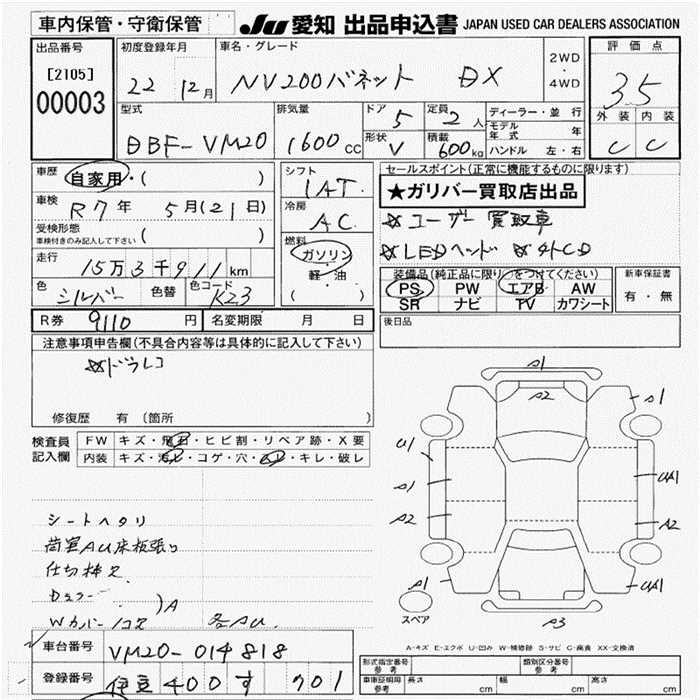 車内保管・守衛保管
JU 愛知 出品申込書 JAPAN USED CAR DEALERS ASSOCIATION
出品番号
[2105]
00003
初度登録年月
22 12月
車名・グレード
NV200バネット DX
2WD
・
4WD
評価点
3.5
外装 内装
C C
型式
DBF-VM20
排気量
1600cc
ドア 5
定員 2人
形状 V
積載 600kg
ディーラー・並行
モデル年式 年
ハンドル 左・右
車歴 自家用・( )
車検 R7年 5月(21日)
受検形態
車検付きのみ記入して下さい ( )
走行 15万3千911km
色 シルバー 色替 色コード K23
シフト
IAT
冷房
AC
燃料
ガソリン
・
軽・油
( )
セールスポイント(正常に機能するものに限ります)
★ガリバー買取店出品
☆ユーザー買取車
☆LEDヘッド ☆外CD
装備品(純正品に限り○をつけてください)
PS PW エアB AW
SR ナビ TV カワシート
新車保証書
有・無
R券 9110円 名変期限 月 日
後日品
注意事項申告欄(不具合内容等は具体的に記入して下さい)
☆ドラレコ
修復歴 有(箇所 )
検査員記入欄
FW キズ・飛石・ヒビ割・リペア跡・X要
内装 キズ・汚レ・コゲ・穴・ムレ・キレ・破レ
シートヘタリ
荷室AU床板張り
仕切棒ズ
)A
Wカバーコスレ 各AU
A1
A2
A1
U1
A1
A2
UA1
A2
A1
UA1
A3
スペア
A-キズ E-エクボ U-凹み W-補修跡 S-サビ C-腐食 XX-交換済
車台番号 VM20-014818
登録番号 伊豆 400 す 701
形式指定番号 参考
類別区分番号 参考
車庫証明用 参考 長さ cm 幅 cm 高さ cm